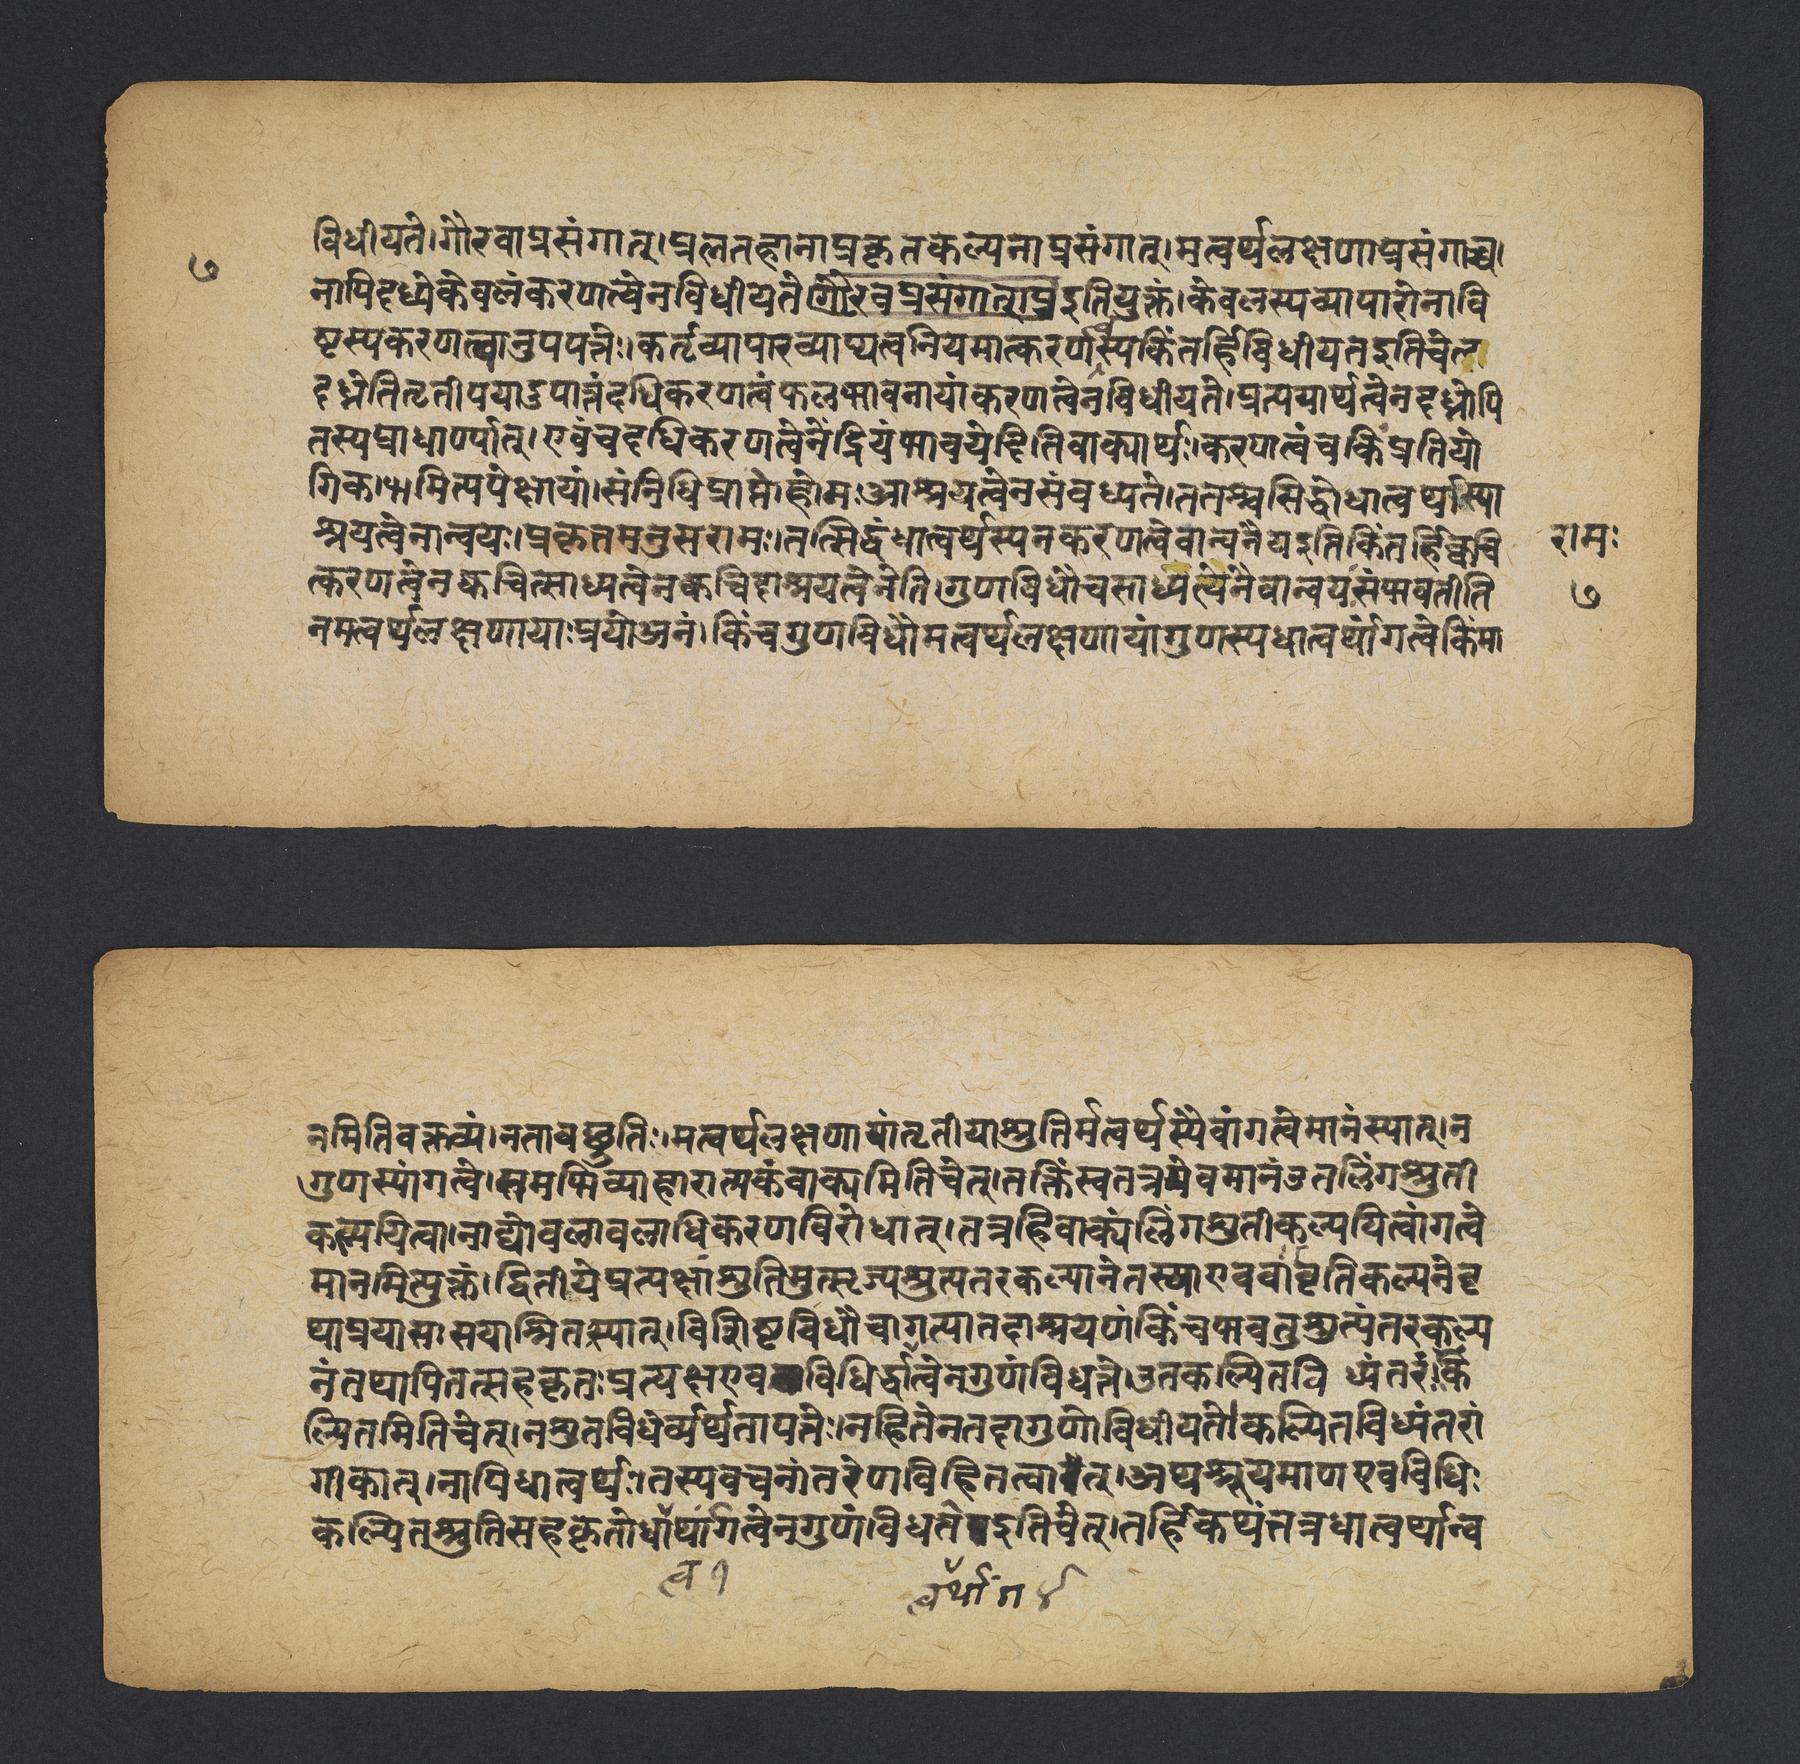 विधीयते।गौरवाप्रसंगात्।प्रलतहानाप्रकृतकल्पनाप्रसंगात्।मत्वर्थलक्षणाप्रसंगाच्च।
७
नापिदध्येकेवलंकरणत्वेनविधीयतेगौरवप्रसंगात्।प्रइतियुक्तं।केवलस्यव्यापारानावि
ष्टस्यकरणत्वानुपपत्तेः।कर्तृव्यापारव्याप्यत्वनियमात्करणस्यकिंतर्हिविधीयतइतिचेत
दध्नेतितृतीययाउपात्तंदधिकरणत्वंफलभावनायांकरणत्वेनविधीयते।प्रत्ययार्थत्वेनदध्नोपि
तस्यप्राधाण्यात्।एवंचदधिकरणत्वेनेंद्रियंभावयेदितिवाक्यार्थः।करणत्वंचकिंप्रतियो
गिकामित्यपेक्षायां।संनिधिप्राप्तोहोमःआश्रयत्वेनसंबध्यते।ततश्चसिद्धोधात्वर्थस्या
श्रयत्वेनान्वयः।प्रकृतमनुसरामः।तत्सिद्धंधात्वर्थस्यनकरणत्वेवान्वनैयइतिकिंतर्हिक्वचि
रामः
त्करणत्वेनक्वचित्साध्यत्वेनक्वचिदाश्रयत्वेनेति।गुणविधौचसाध्यत्वेनैवान्वयसंभवतीति
७
नमत्वर्थलक्षणायाःप्रयोजनं।किंचगुणविधौमत्वर्थलक्षणायांगुणस्यधात्वर्थांगत्वेकिंमा
नमितिवक्तव्यं।नतावछ्रुतिः।मत्वर्थलक्षणायांतृतीयाश्रुतिर्मत्वर्थस्यैवांगत्वेमानंस्यात्।न
गुणस्यांगत्वे।समभिव्याहारात्मकंवाक्यमितिचेत्।तत्किंस्वतन्त्रमेवमानंउतलिंगश्रुती
कल्पयित्वा।नाद्योबलाबलाधिकरणविरोधात्।तत्रहिवाक्यंलिंगश्रुतीकल्पयित्वांगत्वे
मानमित्युक्तं।द्वितीयेप्रत्यक्षांश्रुतिमुत्सृज्यश्रुत्यतरकल्पानेतस्याएववावृतिकल्पनेवृ
थाप्रयासःसयाश्रितस्यात्।विशिष्टविधौचागत्यातदाश्रयणंकिंचभवतुश्रुत्यंतरकल्प
नंतथापितत्सहकृतःप्रत्यक्षएवविधिर्द्धात्वेनगुणंविधत्ते।उतकल्पितवि ध्यंतरं।किं
ल्पितमितिचेत्।नश्रुतविधेर्व्यर्थतापत्तेः।नहितेनतदागुणोविधीयते।कल्पितविध्यंतरां
गीकात्।नापिधात्वर्थः।तस्यवचनांतरेणविहितत्वात्।अथश्रूयमाणएवविधिः
कल्पितश्रुतिसहकृतोधार्थांगत्वेनगुणंविधत्तेइतिचेत्।तर्हिकथंतत्रधात्वर्थान्व
त्व १
त्वर्थांग ४